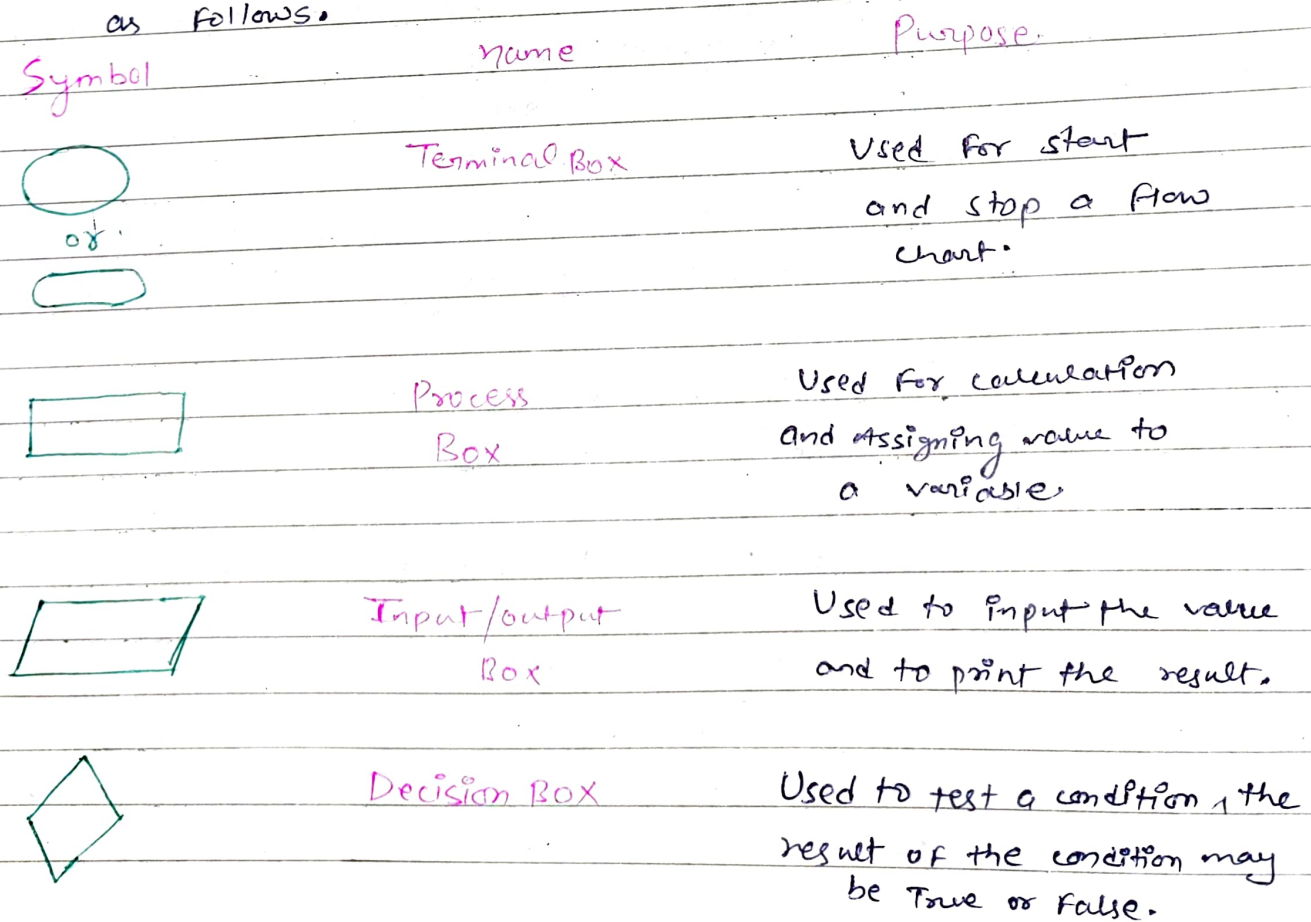 as follows.
Symbol name Purpose.
Terminal Box Used for start
and stop a flow
or.
chart.
Process Used for calculation
Box and Assigning value to
a variable.
Input/output Used to input the value
Box and to print the result.
Decision Box Used to test a condition, the
result of the condition may
be True or False.